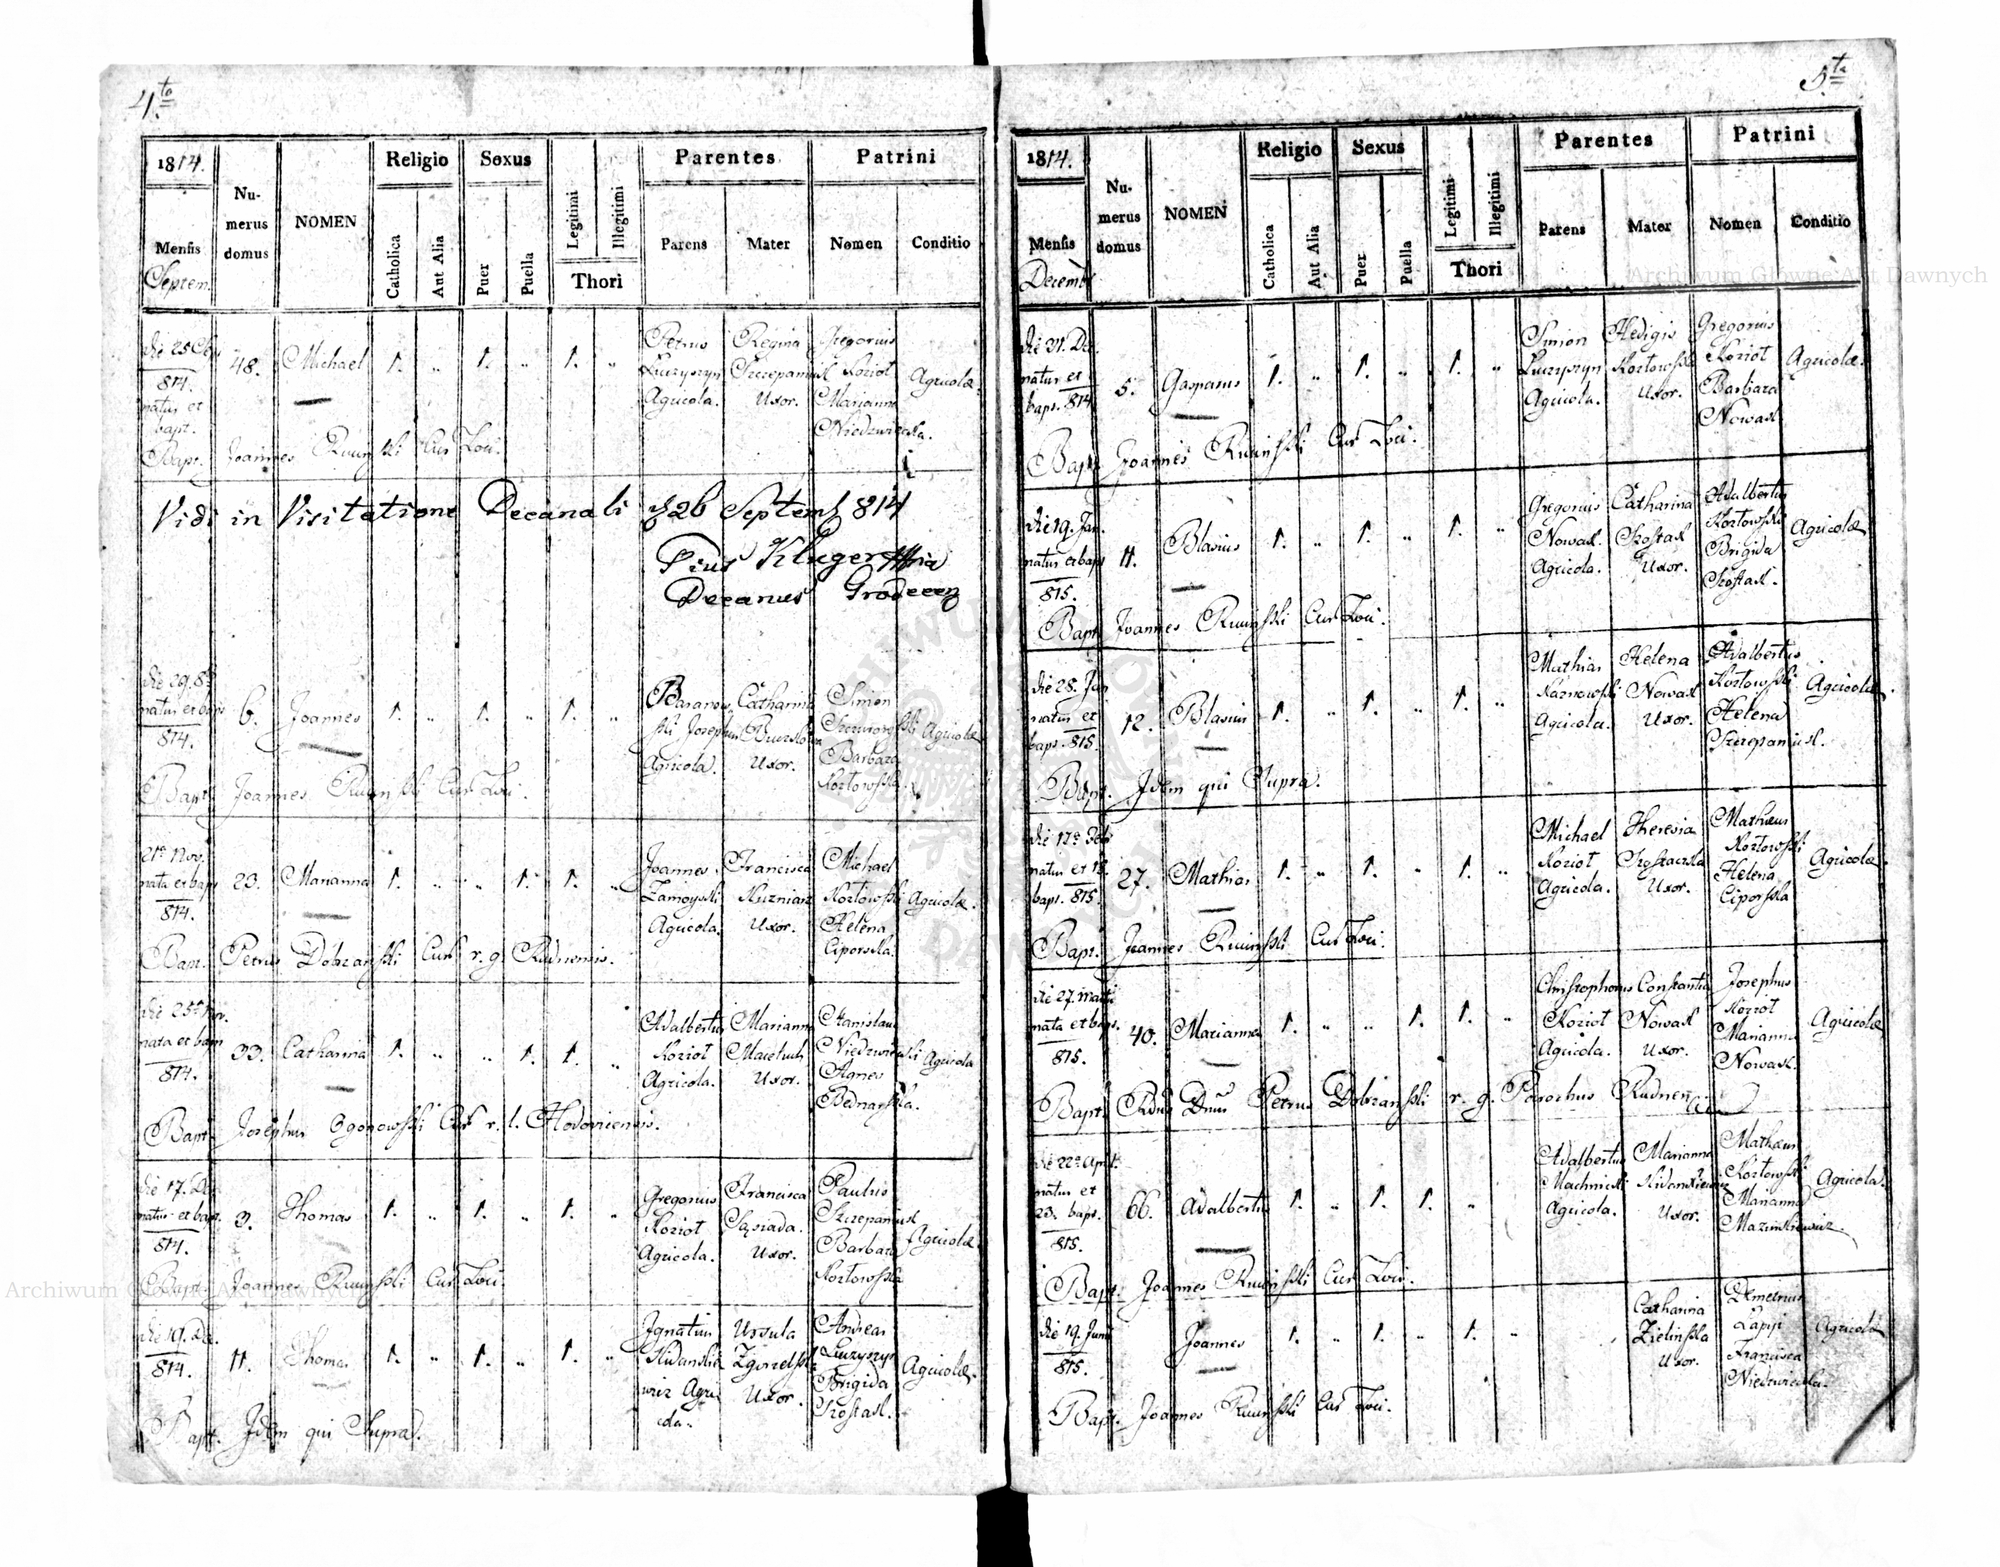 4.to
1814.
Mensis
Septem.
Numerus domus
NOMEN
Religio
Catholica
Aut Alia
Sexus
Puer
Puella
Legitimi
Illegitimi
Thori
Parentes
Parens
Mater
Patrini
Nomen
Conditio
die 25 Sep.
814.
natus et
bapt.
48.
Michael
1. " 1. " 1. "
Petrus
Agricola.
Regina
Uxor.
Gregorius
Kozioł
Marianna
Niedzwiecka.
Agricolæ.
Bapt. Joannes Cur Loci.
Vidi in Visitatione Decanali d 26 Septem 814
Pius Klieger
Decanus Grodecen
natus et bapt
814.
6.
Joannes
1. " 1. " 1. "
Baranow
ski Josephus
Agricola.
Catharina
Uxor.
Simon
Barbara
Kozłowska.
Agricolæ
Bapt. Joannes Cur Loci.
21a Nov.
nata et bapt
814.
23.
Marianna
1. " " 1. 1. "
Joannes
Zamoyski
Agricola.
Francisca
Kuzniar
Uxor.
Michael
Kozłowski
Helena
Ciporska.
Agricolæ.
Bapt. Petrus Dobrzanski Cur r. g. Rudnensis.
nata et bapt
814.
33.
Catharina
1. " " 1. 1. "
Adalbertus
Kozioł
Agricola.
Marianna
Uxor.
Stanislaus
Niedzwiecki
Agnes
Bednarska.
Agricolæ
Bapt. Josephus Ogonowski Cur r. l. Hodoviensis.
die 17. Dec.
natus et bapt.
814.
3.
Thomas
1. " 1. " 1. "
Gregorius
Kozioł
Agricola.
Francisca
Sąsiada.
Uxor.
Paulus
Szczepaniusk
Barbara
Kozłowska
Agricolæ
Bapt. Joannes Cur Loci.
die 19. Dec.
814.
11.
Thomas
1. " 1. " 1. "
Ignatius
Agri
cola.
Ursula
Uxor.
Andreas
Brigida
Szostak.
Agricolæ.
Bapt. Idem qui Supra.
5.ta
1814.
Mensis
Decemb
Numerus domus
NOMEN
Religio
Catholica
Aut Alia
Sexus
Puer
Puella
Legitimi
Illegitimi
Thori
Parentes
Parens
Mater
Patrini
Nomen
Conditio
die 31. Dec.
natus et
bapt. 814
5.
Gasparus
1. " 1. " 1. "
Simon
Agricola.
Hedigis
Kozłowska
Uxor.
Gregorius
Kozioł
Barbara
Nowak
Agricolæ.
Bapt. Joannes Cur Loci.
die 19. Jan.
natus et bapt
815.
11.
Blasius
1. " 1. " 1. "
Gregorius
Nowak.
Agricola.
Catharina
Szostak
Uxor.
Adalbertus
Kozłowski
Brigida
Szostak.
Agricolæ
Bapt. Joannes Cur Loci.
die 28. Jan
natus et
bapt. 815.
12.
Blasius
1. " 1. " 1. "
Mathias
Agricola.
Helena
Nowak
Uxor.
Adalbertus
Kozłowski
Helena
Szczepaniusk.
Agricolæ.
Bapt. Idem qui Supra.
die 17a Feb
natus et 18.
bapt. 815.
27.
Mathias
1. " 1. " 1. "
Michael
Kozioł
Agricola.
Theresia
Uxor.
Mathæus
Kozłowski
Helena
Ciporska
Agricolæ.
Bapt. Joannes Cur Loci.
die 27. Martii
nata et bapt.
815.
40.
Marianna
1. " " 1. 1. "
Christophorus
Kozioł
Agricola.
Constantia
Nowak
Uxor.
Josephus
Kozioł
Marianna
Nowak.
Agricolæ
Bapt. Rdus Dnus Petrus Dobrzanski r. g. Parochus
die 22a Apr.
natus et
23. bapt.
815.
66.
Adalbertus
1. " 1. 1. "
Adalbertus
Machnicki
Agricola.
Marianna
Uxor.
Mathæus
Kozłowski
Marianna
Agricolæ.
Bapt. Joannes Cur Loci.
die 19. Junii
815.
Joannes
1. " 1. " 1. "
Catharina
Zielinska
Uxor.
Demetrius
Łapiy
Francisca
Niedzwiecka.
Agricolæ
Bapt. Joannes Cur Loci.
Archiwum Główne Akt Dawnych
Archiwum Główne Akt Dawnych